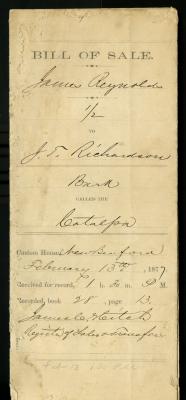 BILL OF SALE.
James Reynolds
1/2
TO
J. T. Richardson
Bark
CALLED THE
Catalpa
Custom House, New Bedford
February 13th, 1877.
Received for record, 1 h. M. P. M.
Recorded, book 28, page 13.
James C. Hitch
Register of Sales & Transfers